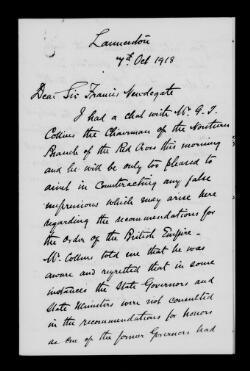 Launceston
7th Oct 1918
Dear Sir Francis Newdegate
I had a chat with Mr. G. T.
Collins the Chairman of the Northern
Branch of the Red Cross this morning
and he will be only too pleased to
assist in counteracting any false
impressions which may arise here
regarding the recommendations for
the Order of the British Empire -
Mr. Collins told me that he was
aware and regretted that in some
instances the State Governors and
State Ministers were not consulted
in the recommendations for honors
as one of the former Governors had